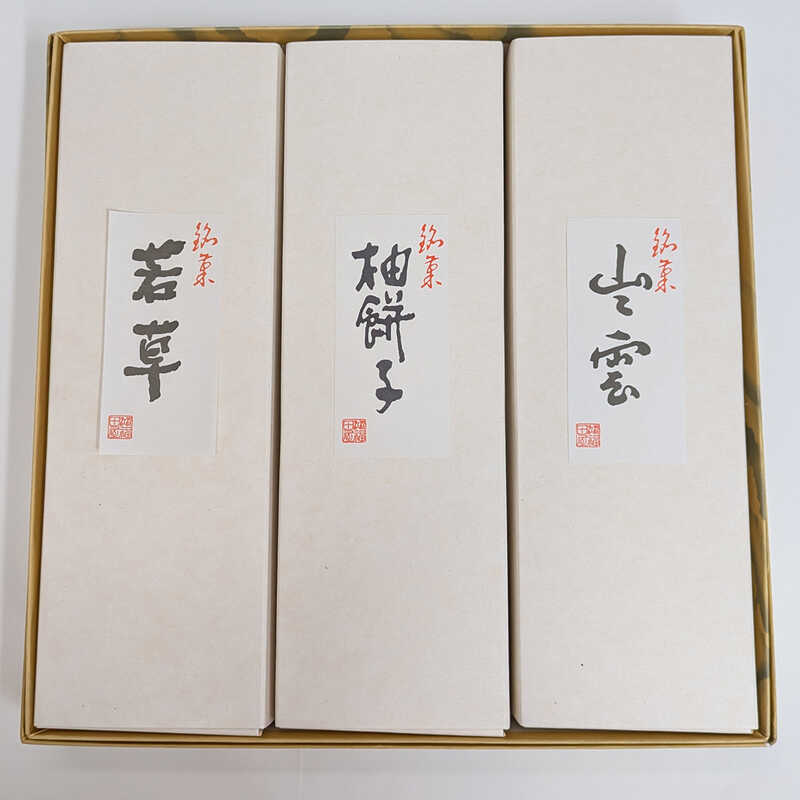 銘菓
若草
銘菓
柚餅子
銘菓
出雲